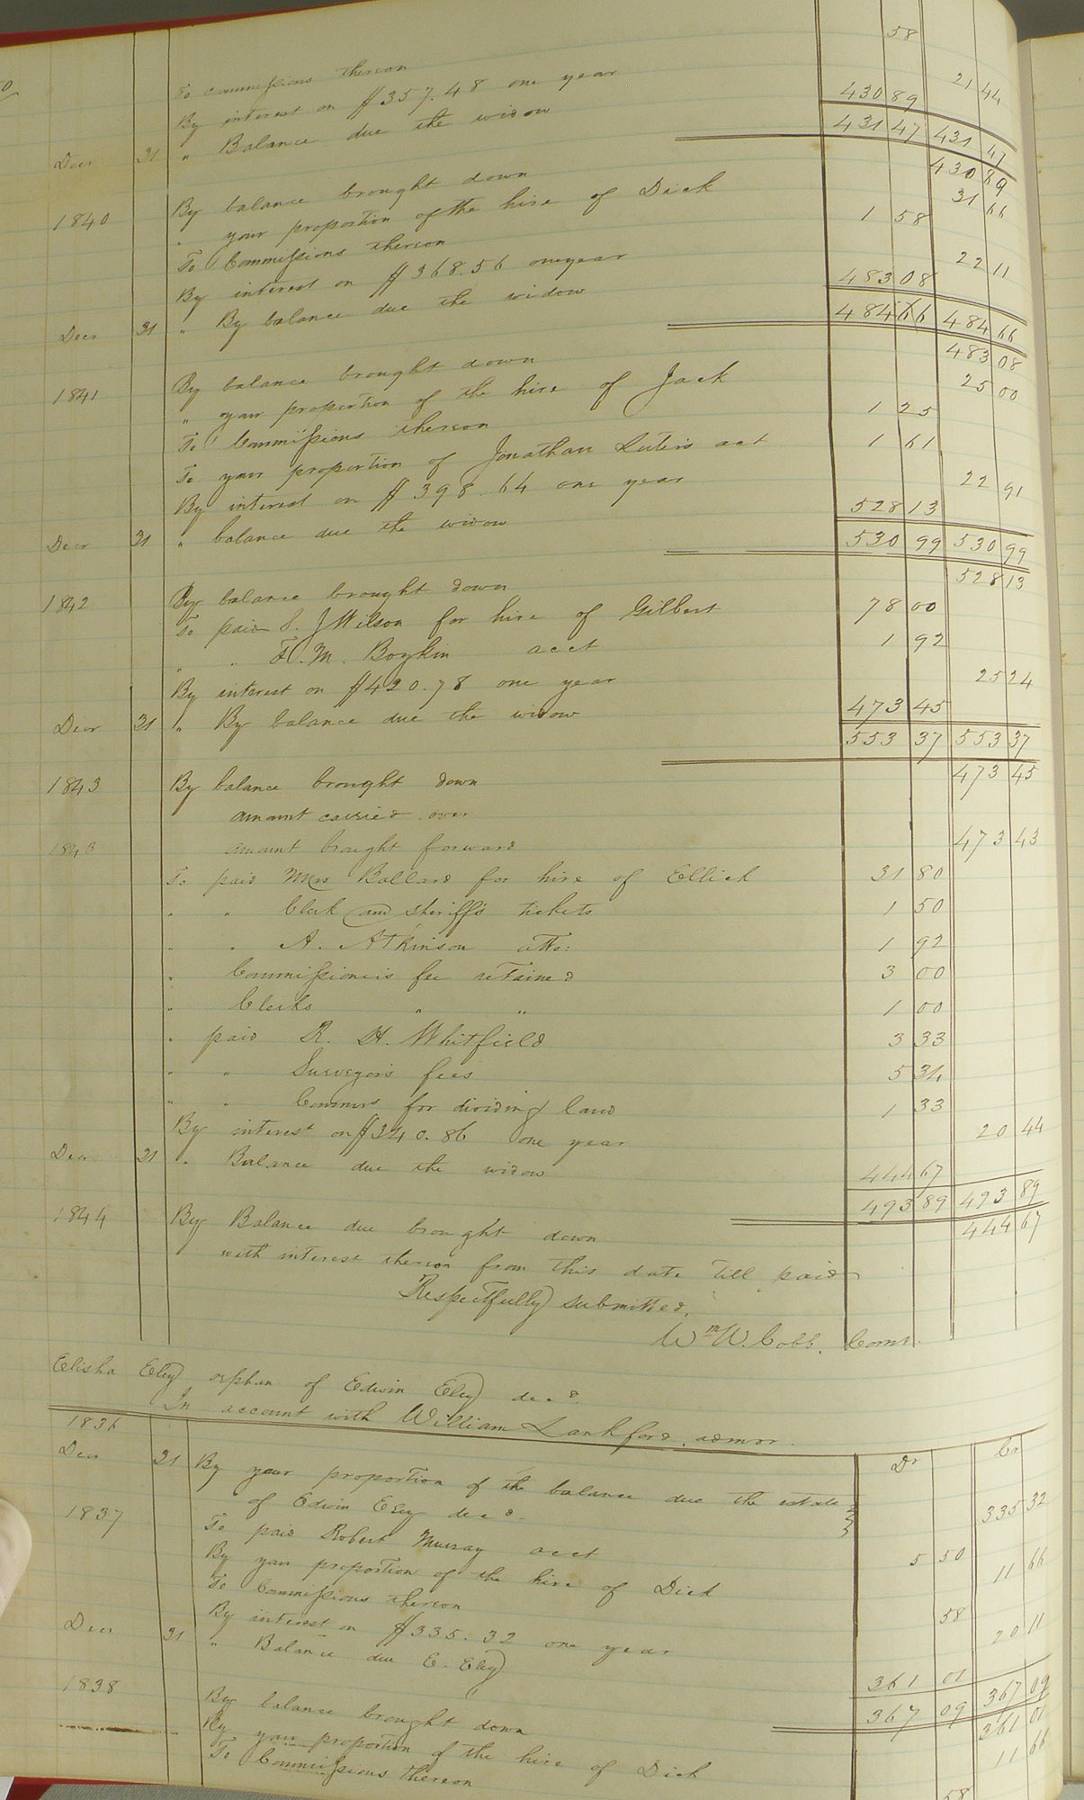 To commissions thereon 58
By interest on $357.48 one year 21 44
Decr 31 " Balance due the widow 430 89
431 47 431 47
1840 By balance brought down 430 89
" your proportion of the hire of Dick 31 66
To Commissions thereon 1 58
By interest on $368.56 one year 22 11
Decr 31 " By balance due the widow 483 08
484 66 484 66
1841 By balance brought down 483 08
" your proportion of the hire of Jack 25 00
To Commissions thereon 1 25
To your proportion of Jonathan Luter's act 1 61
By interest on $398.64 one year 22 91
Decr 31 " balance due the widow 528 13
530 99 530 99
1842 By balance brought down 528 13
To paid J. Wilson for hire of Gilbert 78 00
" " F. M. Boykin acct 1 92
By interest on $420.78 one year 25 24
Decr 31 " By balance due the widow 473 45
553 37 553 37
1843 By balance brought down 473 45
amount carried over
1843 amount brought forward 473 43
To paid Mrs Ballard for hire of Ellick 31 80
" " Clerk and Sheriff's tickets 1 50
" " A. Atkinson atto: 1 92
" Commissioner's fee retained 3 00
" Clerks " " 1 00
" paid R. H. Whitfield 3 33
" " Surveyor's fees 5 34
" " Commrs for dividing land 1 33
By interest on $340.86 one year 20 44
Dec 31 " Balance due the widow 444 67
493 89 493 89
1844 By Balance due brought down 444 67
with interest thereon from this date till paid
Respectfully submitted.
Wm W. Cobb. Comr.
Elisha Eley orphan of Edwin Eley decd.
In account with William Lankford. admor.
1836 Dr Cr
Dec 31 By your proportion of the balance due the estate
of Edwin Eley decd. 335 32
1837 To paid Robert Murray acct 5 50
By your proportion of the hire of Dick 11 66
To Commissions thereon 58
By interest on $335.32 one year 20 11
Decr 31 " Balance due E. Eley 361 01
367 09 367 09
1838 By balance brought down 361 01
By your proportion of the hire of Dick 11 66
To Commissions thereon 58